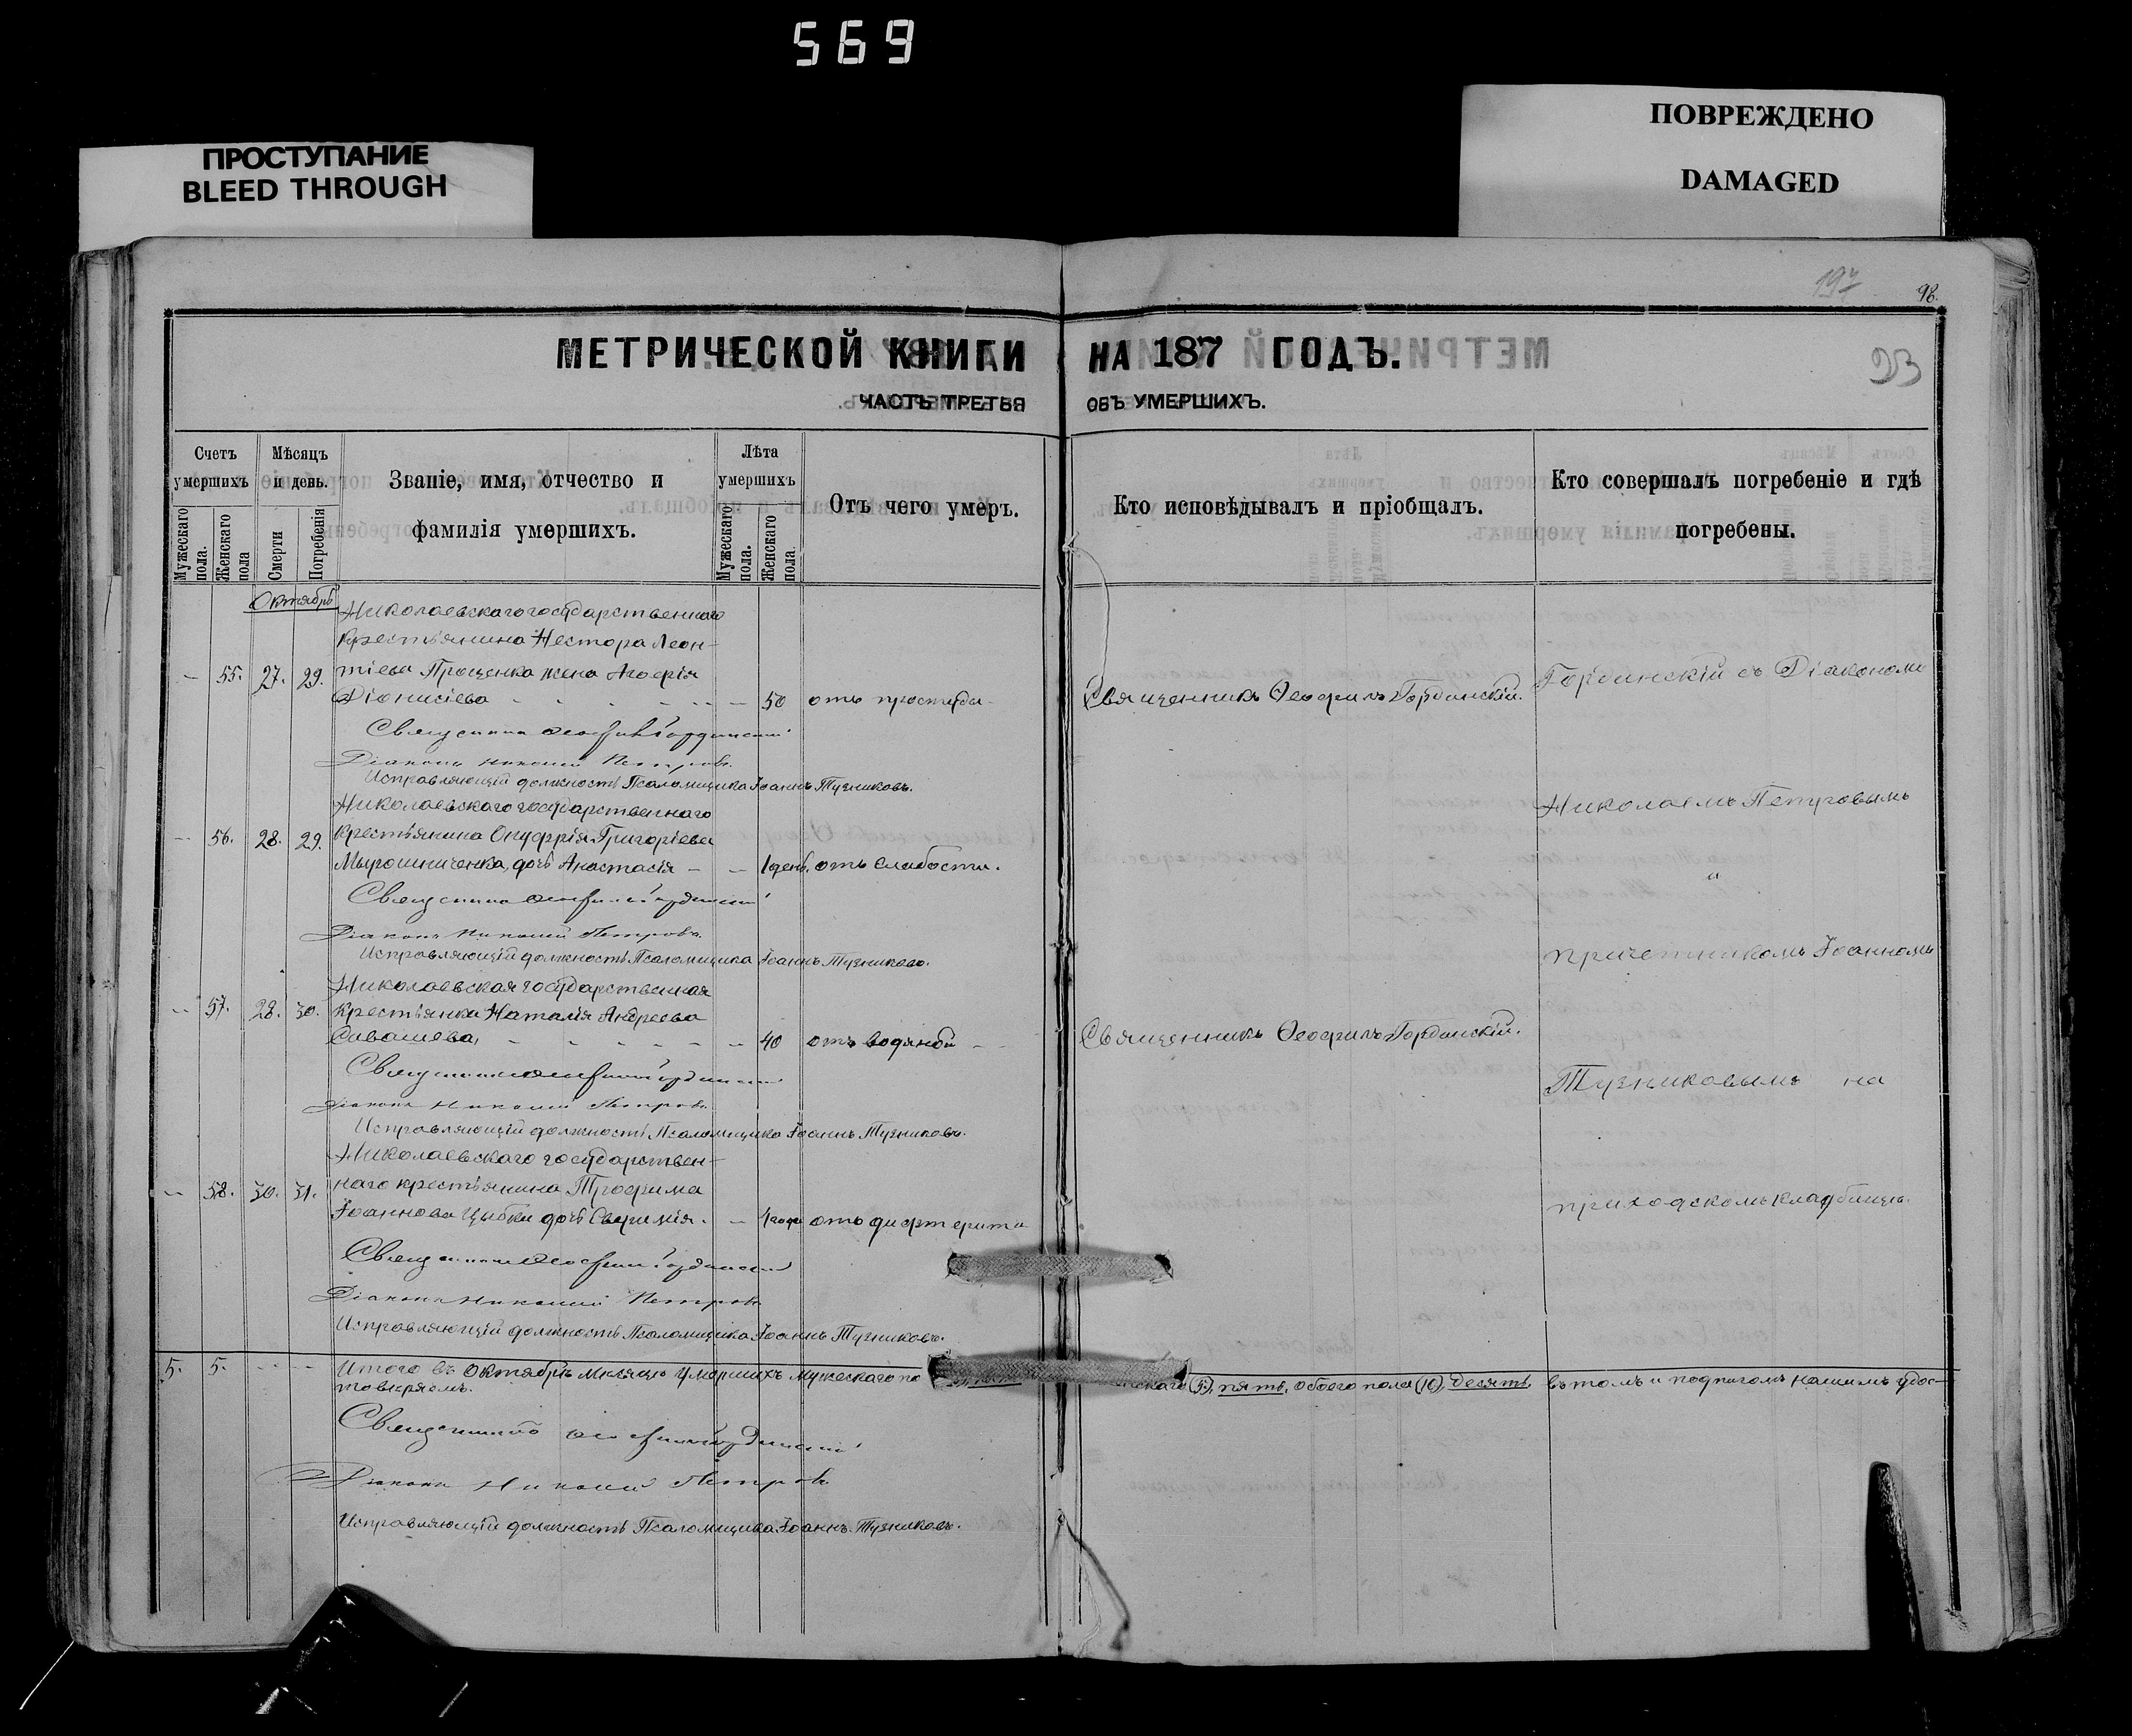 569
ПРОСТУПАНИЕ
BLEED THROUGH
ПОВРЕЖДЕНО
DAMAGED
197
98.
93
МЕТРИЧЕСКОЙ КНИГИ НА 187 ГОДЪ.
ЧАСТЬ ТРЕТЬЯ ОБЪ УМЕРШИХЪ.
Счетъ умершихъ
Мужескаго пола.
Женскаго пола
Мѣсяцъ и день.
Смерти
Погребенія
Званіе, имя, отчество и
фамилія умершихъ.
Лѣта умершихъ
Мужескаго пола.
Женскаго пола.
Отъ чего умеръ.
Кто исповѣдывалъ и пріобщалъ.
Кто совершалъ погребеніе и гдѣ
погребены.
Октябрь
Николаевскаго государственнаго
крестьянина Нестора Леон-
– 55. 27. 29. тіева Проценка жена
Діонисіева – 50 отъ простуды Священникъ Ѳеофилъ Гординскій. Гординскій съ Діакономъ
Священникъ Ѳеофилъ Гординскій
Діаконъ Николай Петровъ.
Исправляющій должность Псаломщика Іоаннъ Тузниковъ.
Николаевскаго государственнаго Николаемъ Петровымъ
– 56. 28. 29. крестьянина Онуфрія Григоріева
Мирошниченка, дочь Анастасія – – 1 день. отъ слабости.
Священникъ Ѳеофилъ Гординскій
Діаконъ Николай Петровъ.
Исправляющій должность Псаломщика Іоаннъ Тузниковъ. причетникомъ Іоанномъ
Николаевская государственная
– 57. 28. 30. крестьянка Наталія Андреева
– 40 отъ водяной – Священникъ Ѳеофилъ Гординскій.
Священникъ Ѳеофилъ Гординскій Тузниковымъ на
Діаконъ Николай Петровъ.
Исправляющій должность Псаломщика Іоаннъ Тузниковъ.
Николаевскаго государствен-
– 58. 30. 31. наго крестьянина Трофима приходскомъ кладбищѣ.
Іоаннова Цыбки дочь – 4 года отъ дифтерита
Священникъ Ѳеофилъ Гординскій
Діаконъ Николай Петровъ
Исправляющій должность Псаломщика Іоаннъ Тузниковъ.
5. 5. – – Итого въ Октябрѣ мѣсяцѣ умершихъ мужескаго по скаго (5), пять, обоего пола (10), десять въ томъ и подписомъ нашимъ удос-
товѣряемъ.
Священникъ Ѳеофилъ Гординскій
Діаконъ Николай Петровъ.
Исправляющій должность Псаломщика Іоаннъ Тузниковъ.